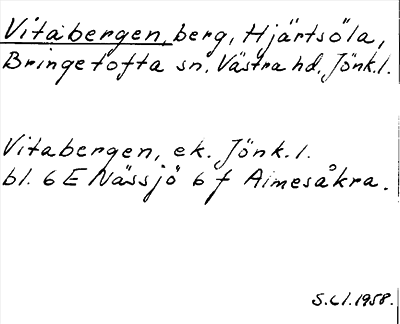 Vitabergen, berg, Hjärtsöla,
Bringetofta sn, Västra hd, Jönk.l.
Vitabergen, ek. Jönk.l.
bl. 6 E Nässjö 6 f Almesåkra.
S.Cl.1958.